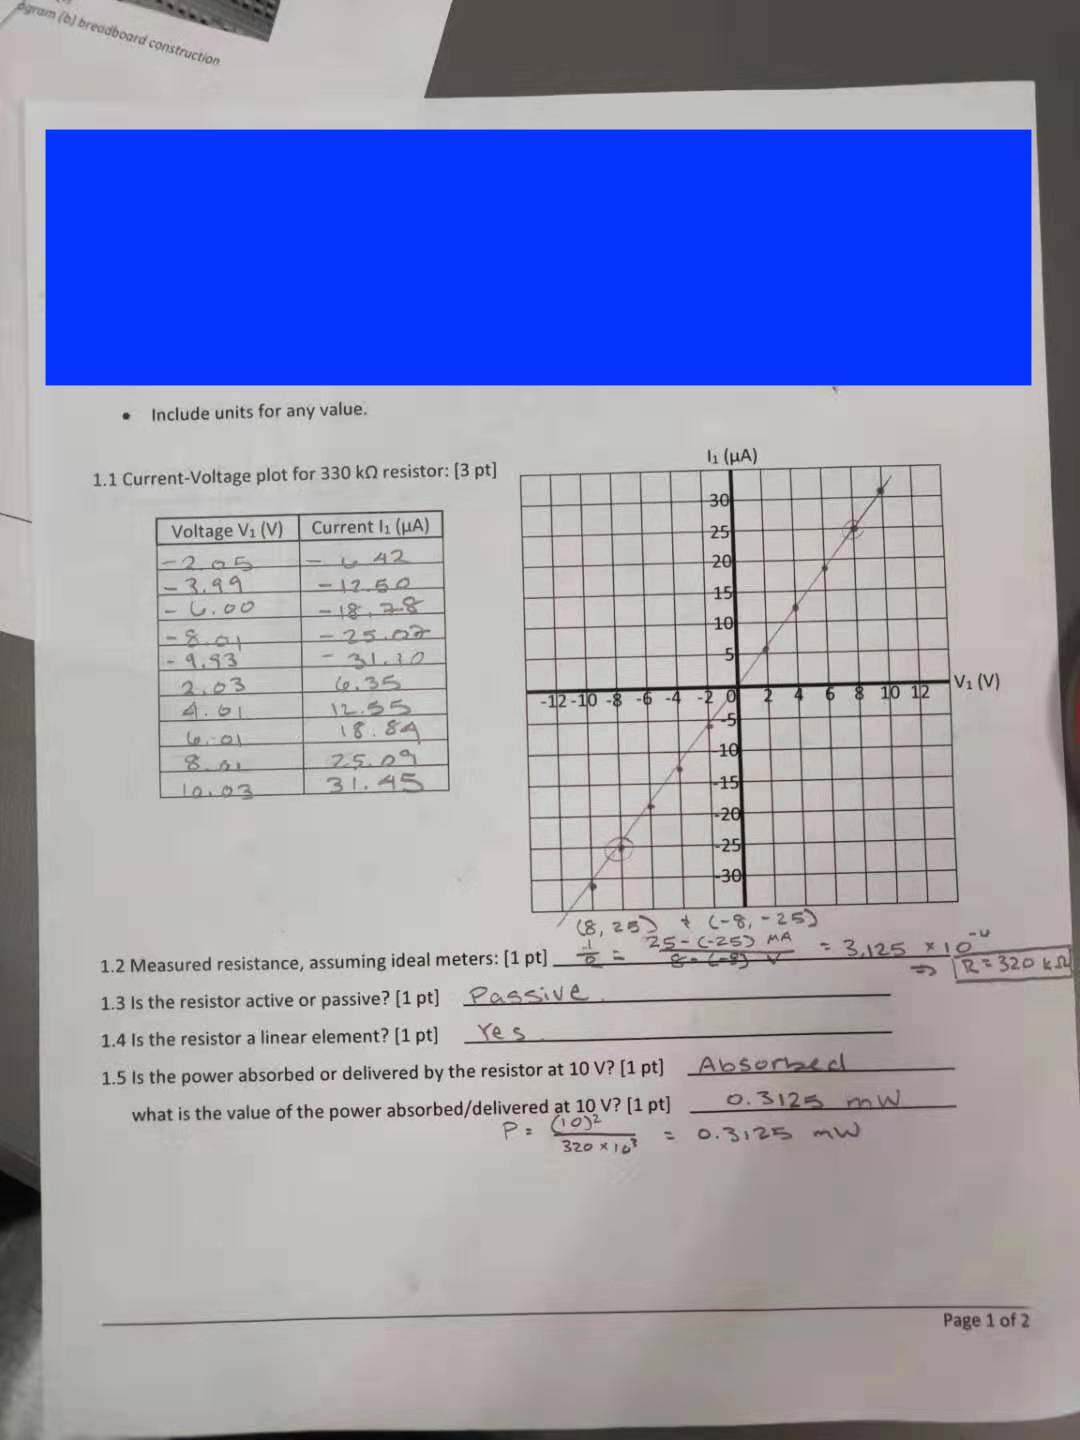 ogram (b) breadboard construction
• Include units for any value.
1.1 Current-Voltage plot for 330 kΩ resistor: [3 pt]
Voltage V₁ (V) Current I₁ (µA)
-2.05 -6.42
-3.99 -12.50
-6.00 -18.78
-8.01 -25.07
-9.93 -31.10
2.03 6.35
4.01 12.55
6.01 18.84
8.01 25.09
10.03 31.45
I₁ (µA)
30
25
20
15
10
5
-12 -10 -8 -6 -4 -2 0 2 4 6 8 10 12 V₁ (V)
-5
-10
-15
-20
-25
-30
(8, 25) & (-8, -25)
1.2 Measured resistance, assuming ideal meters: [1 pt] 1/R = 25-(-25) µA / 8-(-8) V = 3.125 × 10⁻⁶
⇒ R = 320 kΩ
1.3 Is the resistor active or passive? [1 pt] Passive.
1.4 Is the resistor a linear element? [1 pt] Yes.
1.5 Is the power absorbed or delivered by the resistor at 10 V? [1 pt] Absorbed
what is the value of the power absorbed/delivered at 10 V? [1 pt] 0.3125 mW
P = (10)² / 320 × 10³ = 0.3125 mW
Page 1 of 2